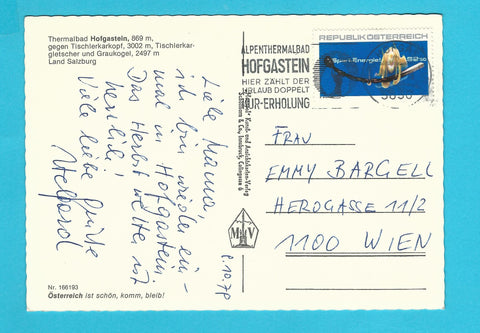 Thermalbad Hofgastein, 869 m,
gegen Tischlerkarkopf, 3002 m, Tischlerkar-
gletscher und Graukogel, 2497 m
Land Salzburg
Liebe Mama,
ich bin wieder ein-
mal in Hofgastein.
Das Herbstwetter ist
herrlich!
Viele liebe Grüße
8.10.78
Nr. 166193
Österreich ist schön, komm, bleib!
ALPENTHERMALBAD
HOFGASTEIN
HIER ZÄHLT DER
URLAUB DOPPELT
KUR-ERHOLUNG
REPUBLIK ÖSTERREICH
Sport-Energie
S2.50
M V
FRAU
EMMY BARGELL
HEROGASSE 11/2
1100 WIEN